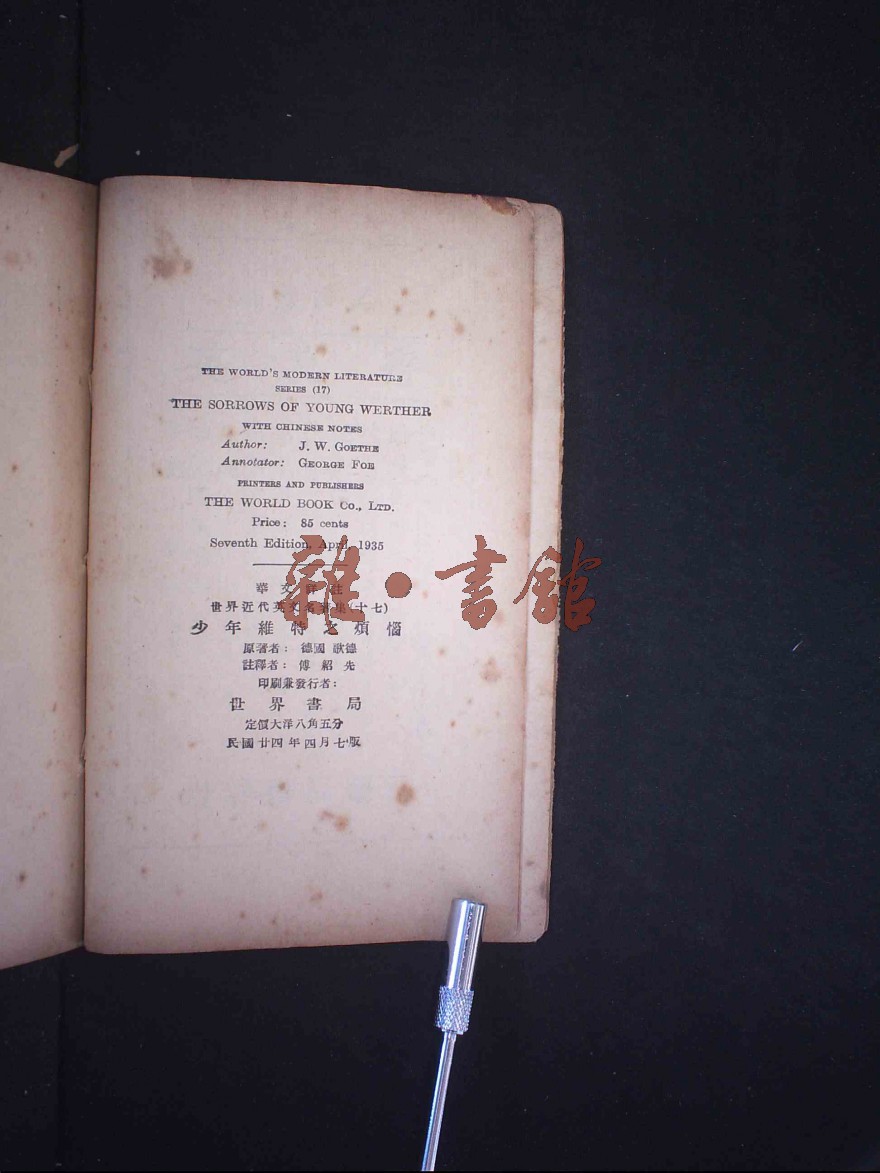 THE WORLD'S MODERN LITERATURE
SERIES (17)
THE SORROWS OF YOUNG WERTHER
WITH CHINESE NOTES
Author: J. W. GOETHE
Annotator: GEORGE FOE
PRINTERS AND PUBLISHERS
THE WORLD BOOK Co., LTD.
Price: 85 cents
Seventh Edition, April, 1935
雜·書館
華文詳註
世界近代英文名著集(十七)
少年維特之煩惱
原著者：德國 歌德
註釋者：傅紹先
印刷兼發行者：
世界書局
定價大洋八角五分
民國廿四年四月七版